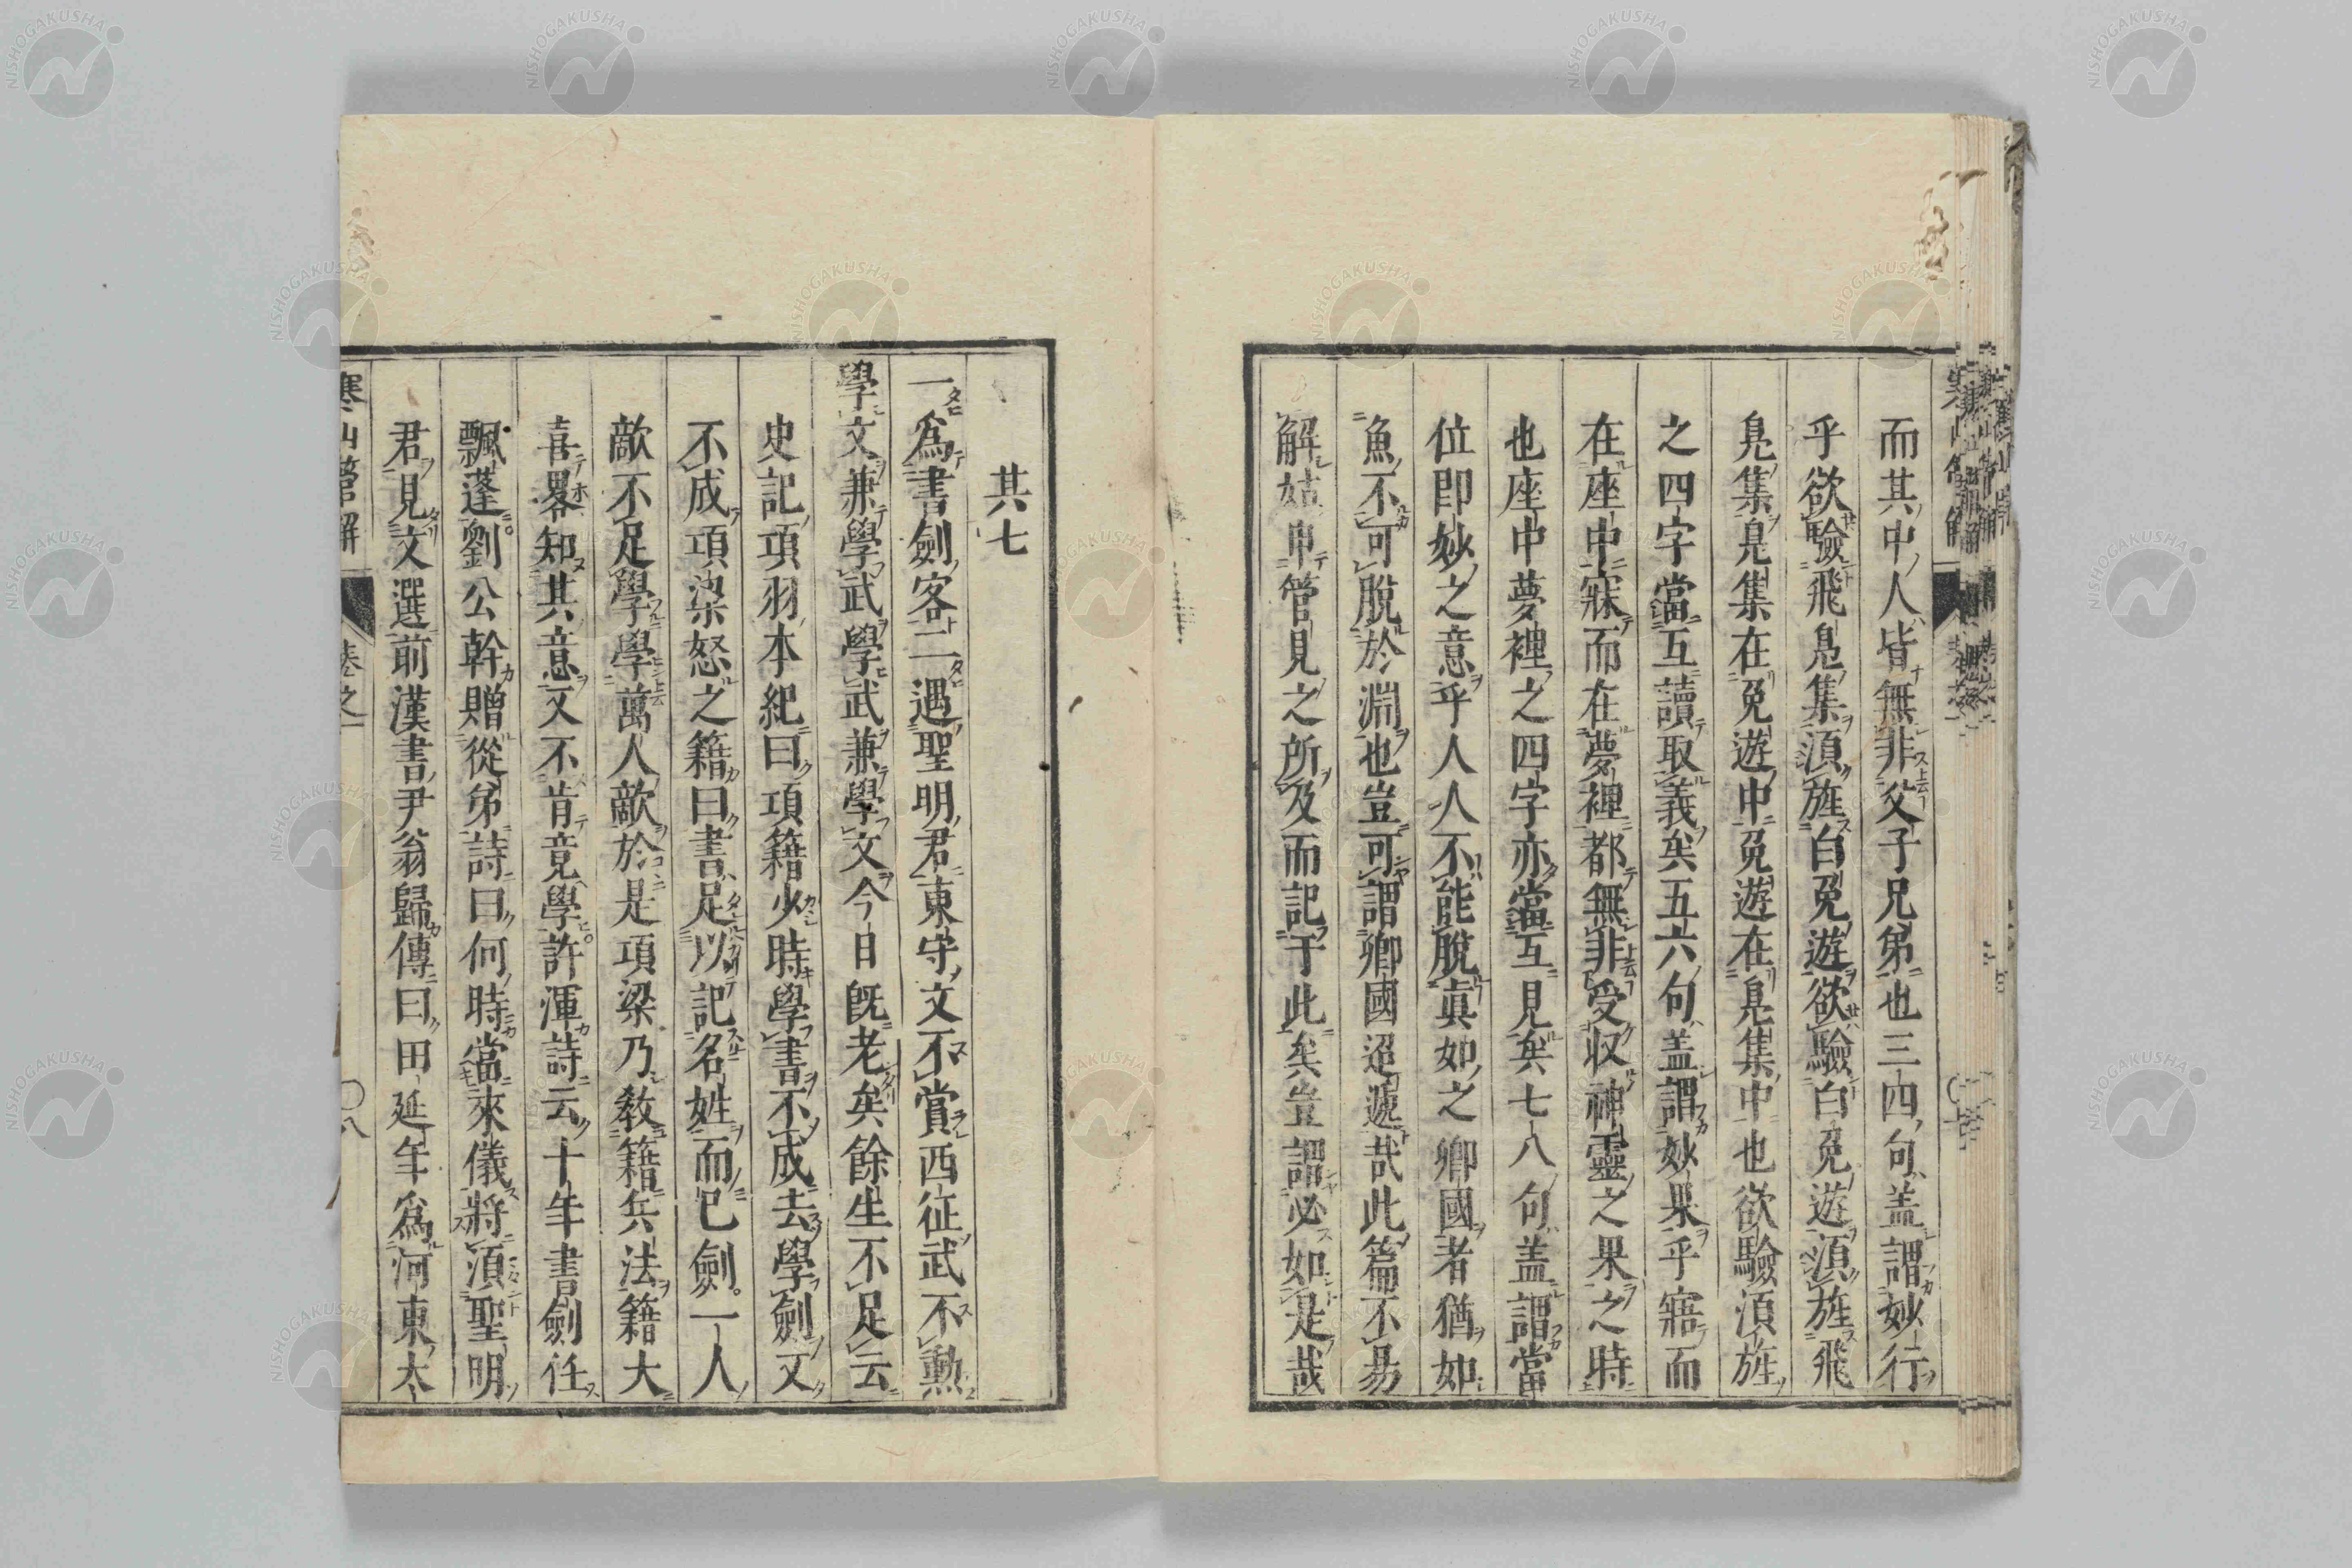 而其中人皆無非父子兄弟也三四句盖謂妙行
乎欲驗飛鳧集湏旌白兎遊欲驗白兎遊湏旌飛
鳧集鳧集在兎遊中兎遊在鳧集中也欲驗湏旌
之四字當互讀取義矣五六句盖謂妙果乎寤而
在座中寐而在夢裡都無非受収神靈之果之時
也座中夢裡之四字亦當互見矣七八句盖謂當
位即妙之意乎人人不能脫眞如之鄉國者猶如
魚不可脫於淵也豈可謂鄉國迢遞哉此篇不易
解姑申管見之所及而記于此矣豈謂必如是哉
其七
一爲書劍客二遇聖明君東守文不賞西征武不勲
學文兼學武學武兼學文今日旣老矣餘生不足云
史記項羽本紀曰項籍少時學書不成去學劍又
不成項梁怒之籍曰書足以記名姓而已劍一人
敵不足學學萬人敵於是項梁乃敎籍兵法籍大
喜畧知其意又不肯竟學許渾詩云十年書劍任
飄蓬劉公幹贈從弟詩曰何時當來儀將湏聖明
君見文選前漢書尹翁歸傳曰田延年爲河東太
寒山管解 卷之一 〇八
NISHOGAKUSHA